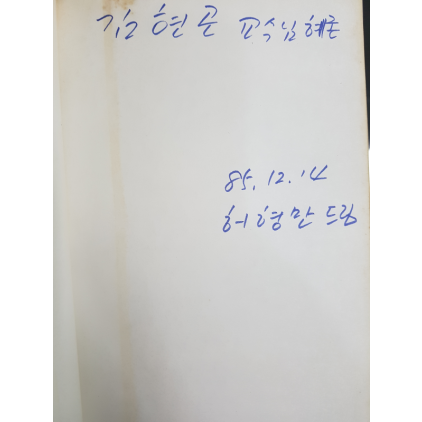 김현곤 교수님 혜존
85. 12. 14
허형만 드림